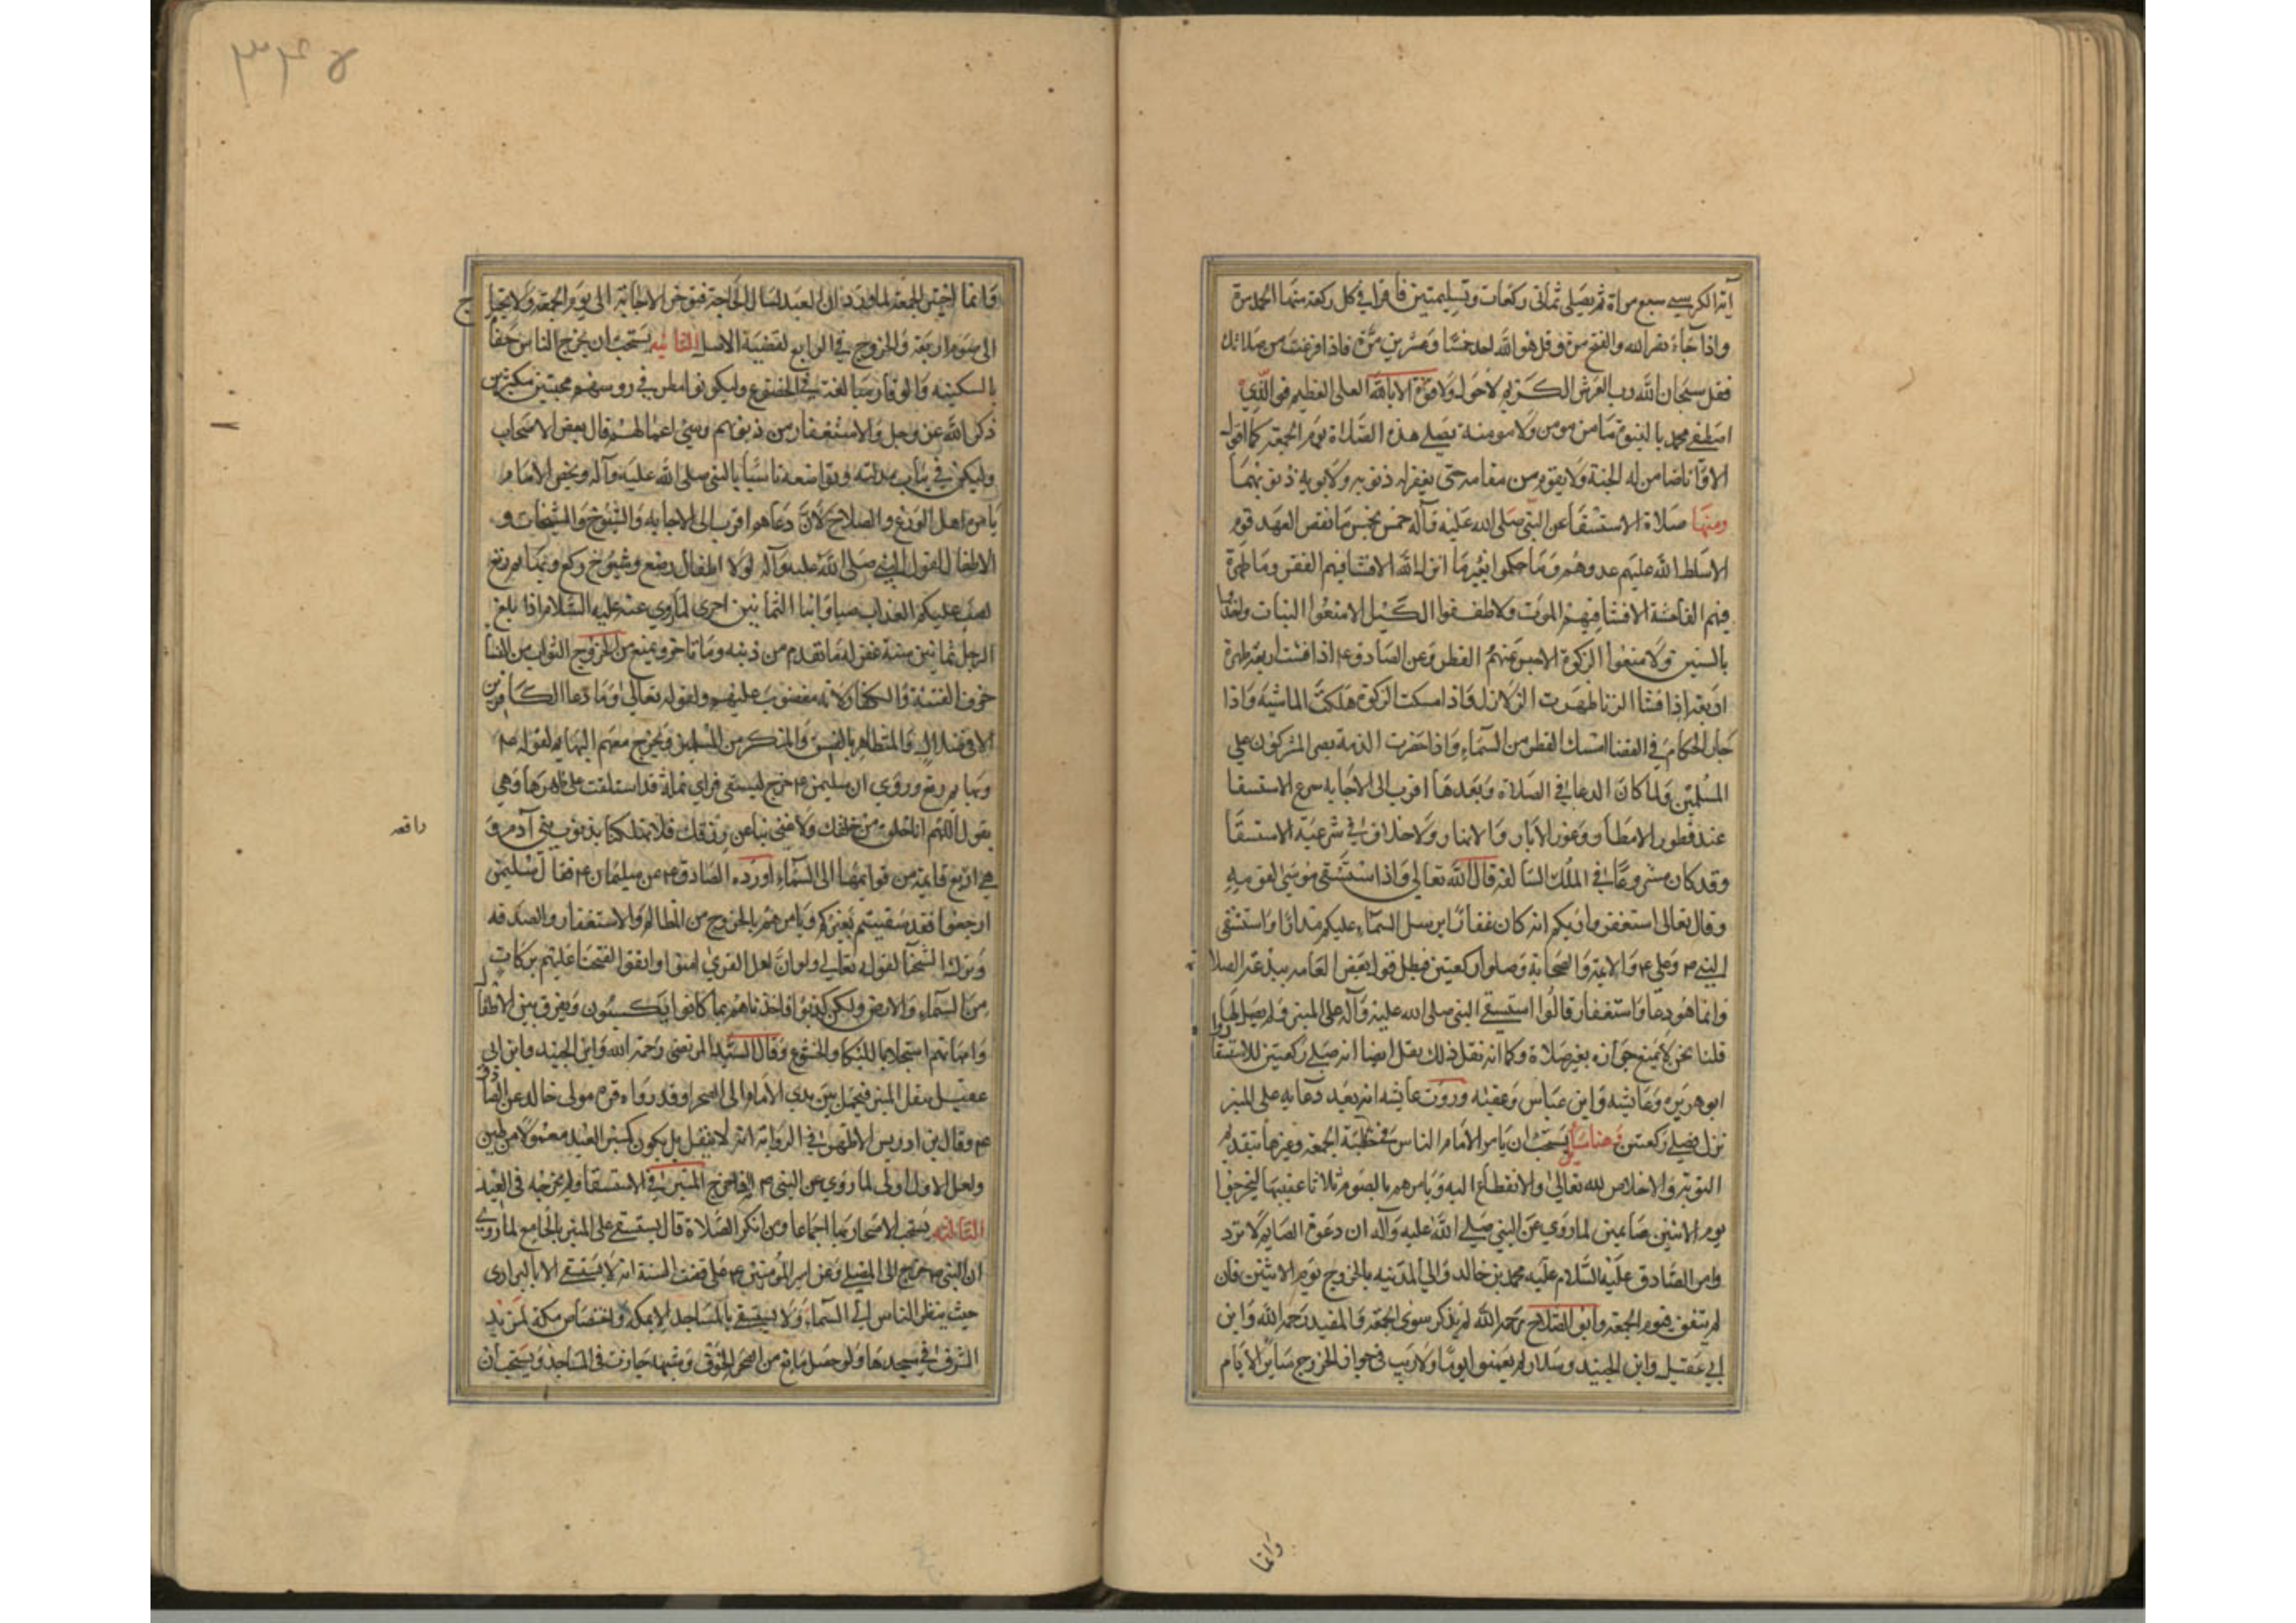 آية الكرسي سبع مراة ثم يصلي ثماني ركعات وتسليمتين فاقرا في كل ركعة منها الحمد مرة
واذا جاء نصر الله والفتح مرة وقل هو الله احد خمسا وعشرين مرة فاذا فرغت من صلاتك
فقل سبحان الله رب العرش الكريم لا حول ولا قوة الا بالله العلي العظيم فو الذي
اصطفي محمد بالنبوة ما من مومن ولا مومنة يصلي هذه الصلاة يوم الجمعة كما اقول
الا وانا ضامن له الجنة ولا يقوم من مقامه حتى يغفر له ذنوبه ولابويه ذنوبهما
ومنها صلاة الاستسقا عن النبي صلى الله عليه وآله خمس بخمس ما نقض العهد قوم
الا سلط الله عليهم عدوهم وما حكموا بغير ما انزل الله الا فشا فيهم الفقر وما ظهرة
فيهم الفاحشة الا فشا فيهم الموت ولا طففوا الكيل الا منعوا النبات واخذوا
بالسنين ولا منعوا الزكوة الا حبس عنهم القطر وعن الصادق ع اذا فشت اربعة ظهرة
اربعة اذا فشا الزنا ظهرت الزلازل واذا امسكت الزكوة هلكت الماشية واذا
جار الحكام في القضا امسك القطر من السماء واذا خفرت الذمة نصر المشركون علي
المسلمين ولما كان الدعا في الصلاة وبعدها اقرب الى الاجابة سرع الاستسقا
عند فطور الامطار وغور الابار والانهار ولا خلاف في شرعية الاستسقا
وقد كان مشروعا في الملل السالفة قال الله تعالي واذ استسقى موسى لقومه
وقال تعالى استغفروا ربكم انه كان غفارا يرسل السماء عليكم مدرارا واستسقى
النبي ص وعلي ع والائمة والصحابة وصلوا ركعتين فبطل قول بعض العامة ببدعة الصلاة
وانما هو دعا واستغفار قالوا استسقي النبي صلى الله عليه وآله على المنبر ولم يصل لها
قلنا نحن لا نمنع جوازه بغير صلاة وكما انه نقل ذلك نقل ايضا انه صلي ركعتين للاستسقا روا
ابو هريره وعايشه وابن عباس وعقبه وروت عايشه انه بعيد دعايه على المنبر
نزل فصلي ركعتين وهنا مسايل يستحب ان يامر الامام الناس في خطبة الجمعة وغيرها بتقديم
التوبة والاخلاص لله تعالى والانقطاع اليه ويامرهم بالصوم ثلاثا عقيبها ليخرجوا
يوم الاثنين صايمين لما روي عن النبي صلى الله عليه وآله ان دعوة الصايم لا ترد
وامر الصادق عليه السلام عليه محمد بن خالد والي المدينه بالخروج يوم الاثنين فان
لم يتفق فيوم الجمعة وابو الصلاح رحمه الله لم يذكر سوى الجمعة والمفيد رحمه الله وابن
ابي عقيل وابن الجنيد وسلار لم يعينوا يوما ولا ريب في جواز الخروج ساير الايام
وانما
٣٤٥
وانما اختير الجمعة لما ورد ان العبد ليسال الحاجة فتوخر الاجابة الى يوم الجمعة ولا يحتاج
الى صوم اربعة والخروج في الرابع لقضية الاصل الثانيه يستحب ان يخرج الناس حفاة
بالسكينه والوقار مبالغة في الخضوع وليكونوا مطرقي روسهم مخبتين مكثرين
ذكر الله عز وجل والاستغفار من ذنوبهم وسيئ اعمالهم قال بعض الاصحاب
وليكن في ثياب بذلته وتواضعه تاسيا بالنبي صلى الله عليه وآله ويخص الامام
يامر اهل الورع والصلاح لان دعاهم اقرب الى الاجابة والشيوخ والشيخات و
الاطفال لقول النبي صلى الله عليه وآله لولا اطفال رضع وشيوخ ركع وبهايم رتع
لصب عليكم العذاب صبا وابنا الثمانين احرى لما روي عنه عليه السلام اذا بلغ
الرجل ثمانين سنة غفر له ما تقدم من ذنبه وما تاخر ويمنع من الخروج الشواب من النسا
خوف الفتنة والكفار لانه مغضوب عليهم ولقوله تعالى وما دعا الكافرين
الا في ضلال والمتظاهر بالفسق والمنكر من المسلمين ويخرج معهم البهايم لقوله ص
وبهايم رتع وروي ان سليمن ع خرج ليستقي فراي نملة قد استلقت على ظهرها وهي
رافعه
يقول اللهم انا خلق من خلقك ولا غنى بنا عن رزقك فلا تهلكنا بذنوب بني آدم و
هي ارفع قايمة من قوايمها الى السماء اورده الصادق ع عن سليمان ع فقال سليمن
ارجعوا فقد سقيتم بغيركم ويامرهم بالخروج من المظالم والاستغفار والصدقه
وترك الشحنا لقوله تعالي ولو ان اهل القرى امنوا واتقوا لفتحنا عليهم بركات
من السماء والارض ولكن كذبوا فاخذناهم بما كانوا يكسبون ويفرق بين الاطفال
وامهاتهم استجلابا للبكا والخشوع وقال السيد المرتضى رحمه الله وابن الجنيد وابن ابي
عقيل ينقل المنبر فيحمل بين يدي الامام الى الصحرا وقد رواه قره مولى خالد عن الصادق
ع وقال بن ادريس الاظهر في الرواية انه لا ينقل بل يكون كمنبر العيد معمولا من طين
ولعل الاول اولى لما روي عن النبي ص انه اخرج المنبر في الاستسقا ولم يخرجه في العيد
الثالثه يستحب الاصحار بها اجماعا ومن انكر الصلاة قال يستسقي على المنبر بالجامع لما روي
ان النبي ص خرج الى المصلي وعن امير المؤمنين ع مضت السنة انه لا يستسقي الا بالبراري
حيث ينظر الناس الى السماء ولا يستسقي بالمساجد الا بمكة واختصاص مكة لمزيد
الشرف في مسجدها ولو حصل مانع من الصحرا لخوف وشبهه جازت في المساجد ويستحب ان